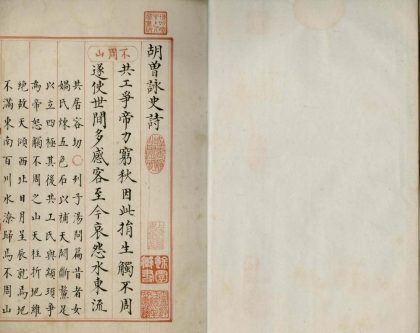 胡曾詠史詩
不周山
共工爭帝力窮秋因此捐生觸不周
遂使世間多感客至今哀怨水東流
共居容切〇列子湯問篇昔者女
媧氏練五色石以補天闕斷鼇足
以立四極其後共工氏與顓頊爭
為帝怒觸不周之山天柱折地維
絕故天傾西北日月星辰就焉地
不滿東南百川水潦歸焉不周山